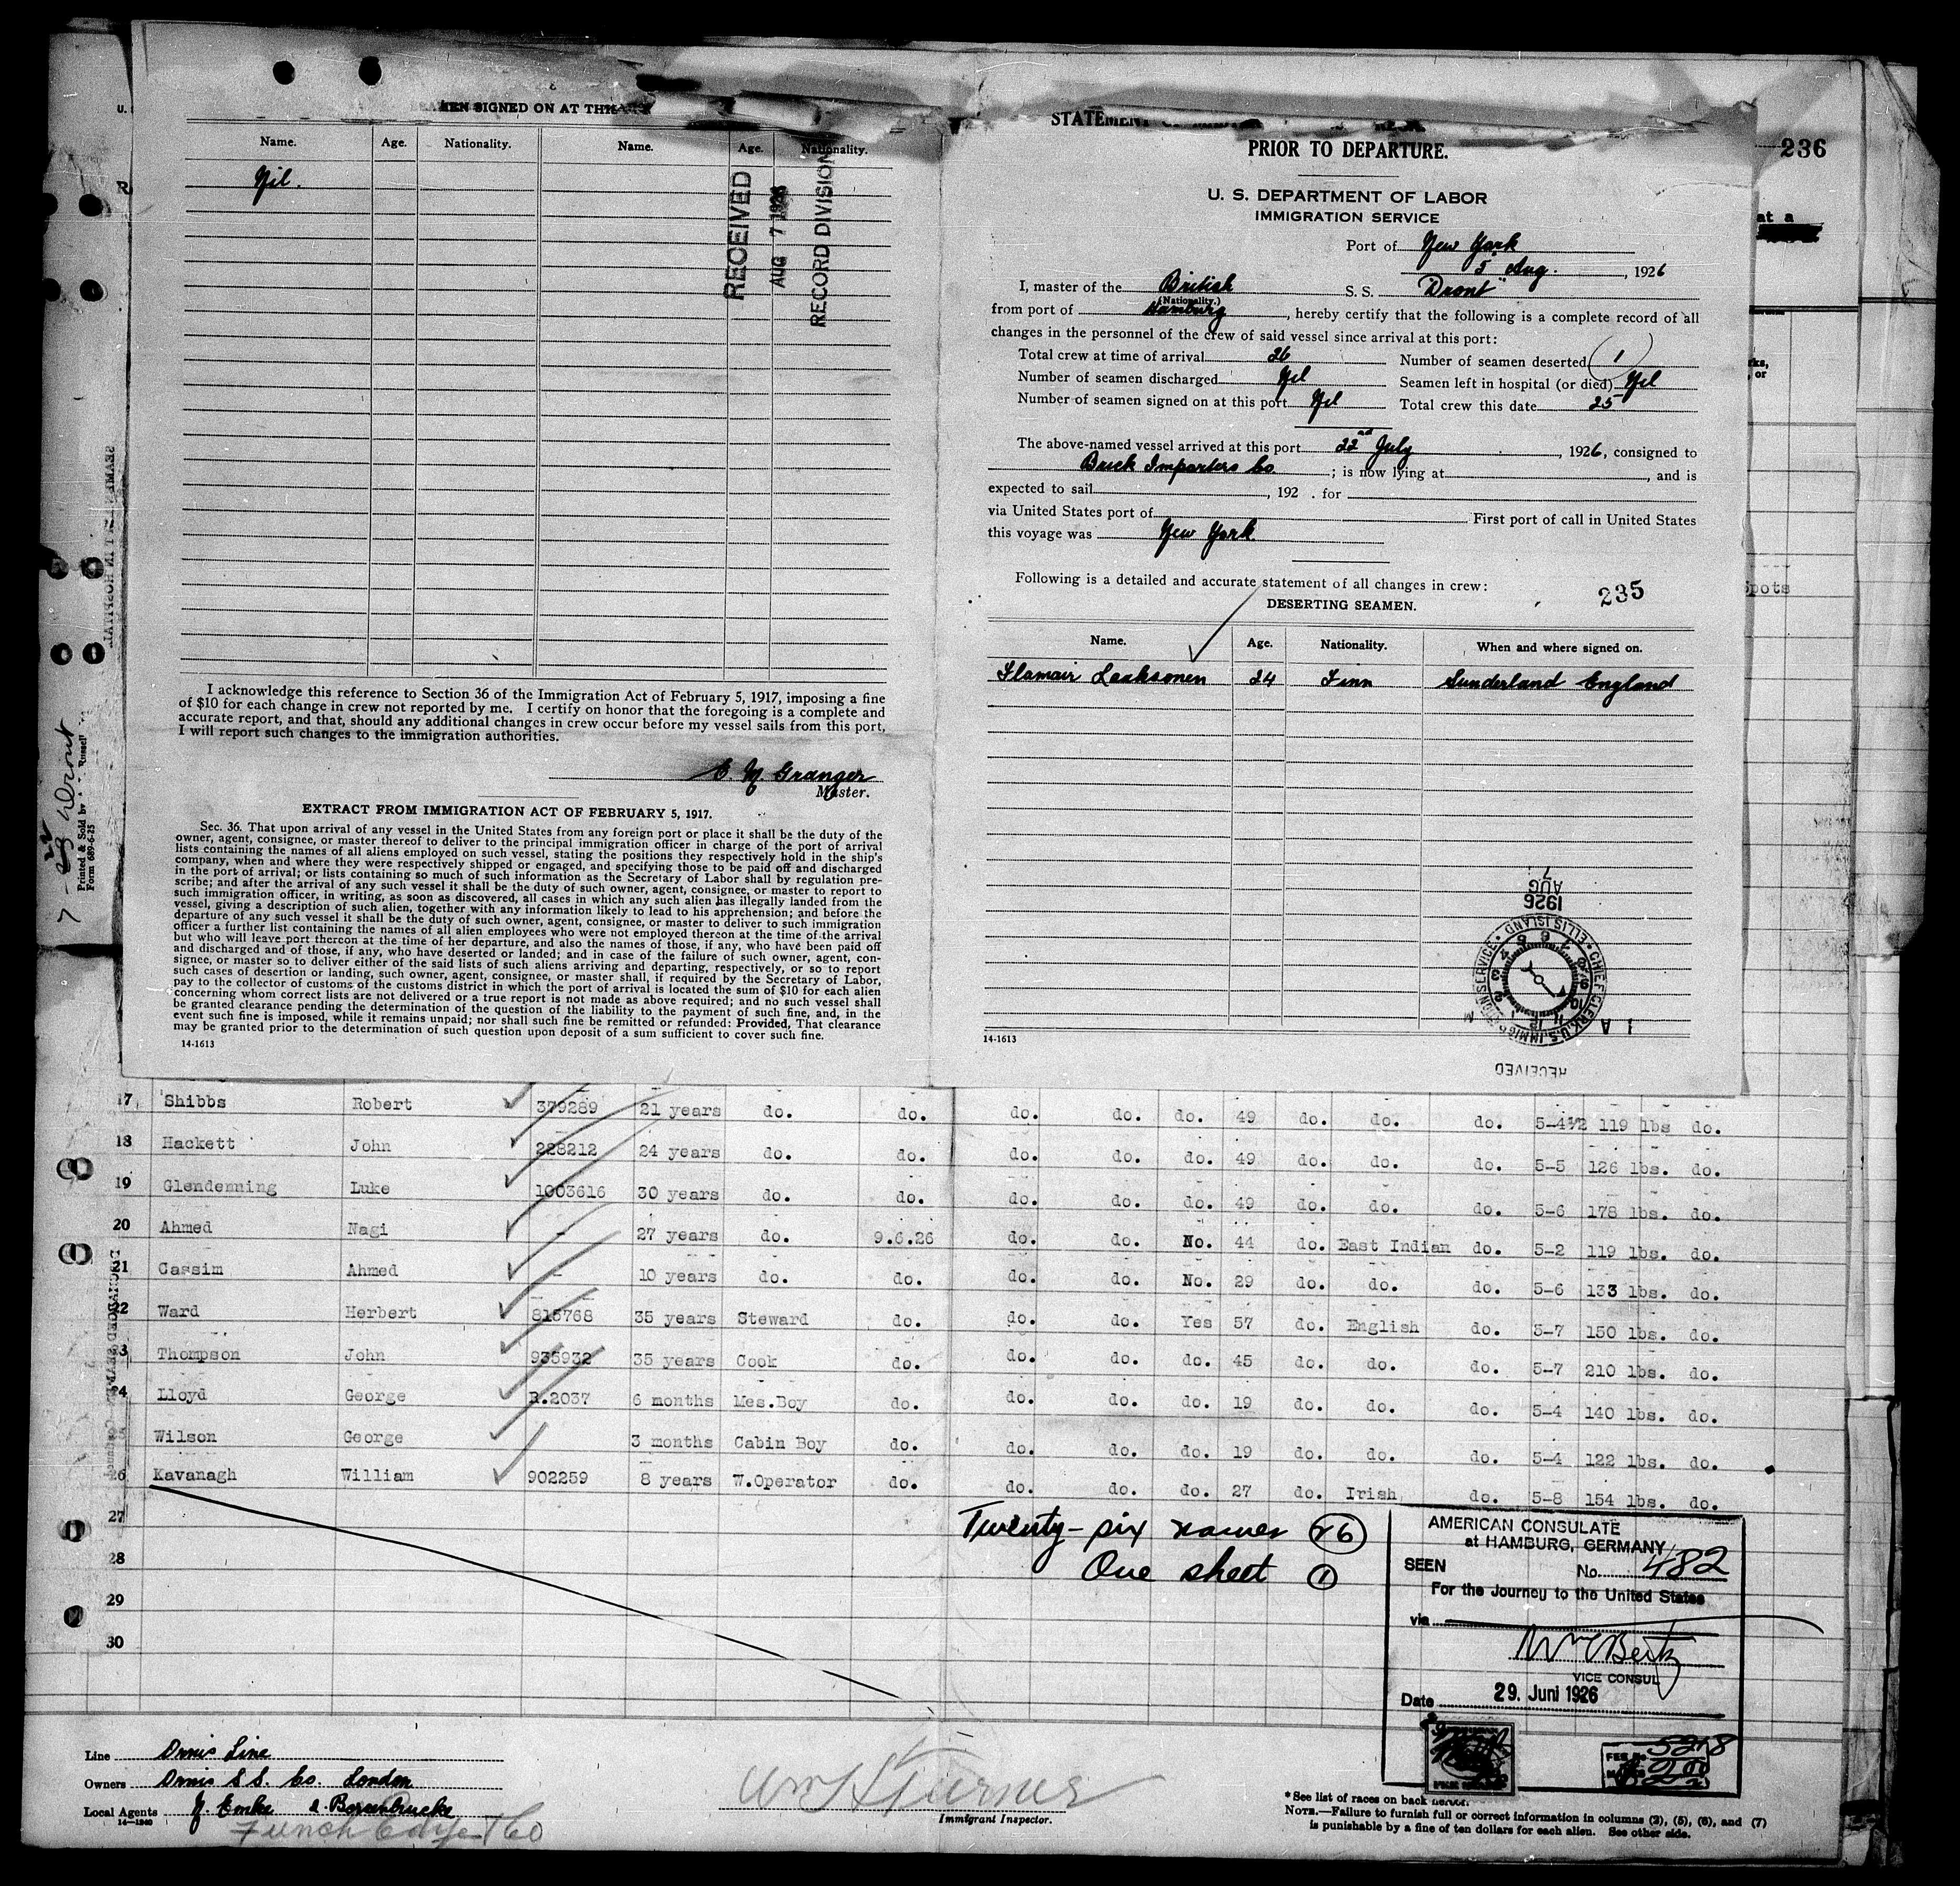 SEAMEN SIGNED ON AT THIS
Name. Age. Nationality. Name. Age. Nationality.
Nil.
RECEIVED
AUG 7 1926
RECORD DIVISION
I acknowledge this reference to Section 36 of the Immigration Act of February 5, 1917, imposing a fine
of $10 for each change in crew not reported by me. I certify on honor that the foregoing is a complete and
accurate report, and that, should any additional changes in crew occur before my vessel sails from this port,
I will report such changes to the immigration authorities.
Granger
Master.
EXTRACT FROM IMMIGRATION ACT OF FEBRUARY 5, 1917.
Sec. 36. That upon arrival of any vessel in the United States from any foreign port or place it shall be the duty of the
owner, agent, consignee, or master thereof to deliver to the principal immigration officer in charge of the port of arrival
lists containing the names of all aliens employed on such vessel, stating the positions they respectively hold in the ship's
company, when and where they were respectively shipped or engaged, and specifying those to be paid off and discharged
in the port of arrival; or lists containing so much of such information as the Secretary of Labor shall by regulation pre-
scribe; and after the arrival of any such vessel it shall be the duty of such owner, agent, consignee, or master to report to
such immigration officer, in writing, as soon as discovered, all cases in which any such alien has illegally landed from the
vessel, giving a description of such alien, together with any information likely to lead to his apprehension; and before the
departure of any such vessel it shall be the duty of such owner, agent, consignee, or master to deliver to such immigration
officer a further list containing the names of all alien employees who were not employed thereon at the time of the arrival
but who will leave port thereon at the time of her departure, and also the names of those, if any, who have been paid off
and discharged and of those, if any, who have deserted or landed; and in case of the failure of such owner, agent, con-
signee, or master so to deliver either of the said lists of such aliens arriving and departing, respectively, or so to report
such cases of desertion or landing, such owner, agent, consignee, or master shall, if required by the Secretary of Labor,
pay to the collector of customs of the customs district in which the port of arrival is located the sum of $10 for each alien
concerning whom correct lists are not delivered or a true report is not made as above required; and no such vessel shall
be granted clearance pending the determination of the question of the liability to the payment of such fine, and, in the
event such fine is imposed, while it remains unpaid; nor shall such fine be remitted or refunded: Provided, That clearance
may be granted prior to the determination of such question upon deposit of a sum sufficient to cover such fine.
14-1613
STATEMENT
PRIOR TO DEPARTURE.
236
U. S. DEPARTMENT OF LABOR
IMMIGRATION SERVICE
Port of New York
5 Aug., 1926
I, master of the British S. S. "Dront"
(Nationality.)
from port of Hamburg, hereby certify that the following is a complete record of all
changes in the personnel of the crew of said vessel since arrival at this port:
Total crew at time of arrival 26 Number of seamen deserted 1
Number of seamen discharged Nil Seamen left in hospital (or died) Nil
Number of seamen signed on at this port Nil Total crew this date 25
The above-named vessel arrived at this port 22nd July, 1926, consigned to
Brick Importers Co; is now lying at, and is
expected to sail, 192 . for
via United States port of First port of call in United States
this voyage was New York
Following is a detailed and accurate statement of all changes in crew:
DESERTING SEAMEN. 235
Name. Age. Nationality. When and where signed on.
Laaksonen 24 Finn Sunderland England
AUG 7 1926
CHIEF CLERK, U.S. IMMIGRATION SERVICE • ELLIS ISLAND •
RECEIVED
14-1613
Printed & Sold by
Form 689-6-25
17 Shibbs Robert 379289 21 years do. do. do. do. do. 49 do. do. do. 5-4½ 119 lbs do.
18 Hackett John 228212 24 years do. do. do. do. do. 49 do. do. do. 5-5 126 lbs. do.
19 Glendenning Luke 1003616 30 years do. do. do. do. do. 49 do. do. do. 5-6 178 lbs. do.
20 Ahmed Nagi - 27 years do. 9.6.26 do. do. No. 44 do. East Indian do. 5-2 119 lbs. do.
21 Cassim Ahmed - 10 years do. do. do. do. No. 29 do. do. do. 5-6 133 lbs. do.
22 Ward Herbert 815768 35 years Steward do. do. do. Yes 57 do. English do. 5-7 150 lbs. do.
23 Thompson John 935932 35 years Cook do. do. do. do. 45 do. do. do. 5-7 210 lbs. do.
24 Lloyd George R.2037 6 months Mes.Boy do. do. do. do. 19 do. do. do. 5-4 140 lbs. do.
Wilson George 3 months Cabin Boy do. do. do. do. 19 do. do. do. 5-4 122 lbs. do.
26 Kavanagh William 902259 8 years W.Operator do. do. do. do. 27 do. Irish do. 5-8 154 lbs. do.
27
28
29
30
Twenty-six names 26
One sheet 1
AMERICAN CONSULATE
at HAMBURG, GERMANY
SEEN No. 482
For the Journey to the United States
via
VICE CONSUL
Date 29. Juni 1926
Line Ornis Line
Owners Ornis S.S. Co. London
Local Agents
14-1240
Immigrant Inspector.
* See list of races on back hereof.
NOTE.—Failure to furnish full or correct information in columns (2), (5), (6), and (7)
is punishable by a fine of ten dollars for each alien. See other side.